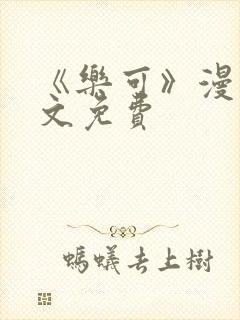 《樂可》漫
文免費
螞蟻去上樹